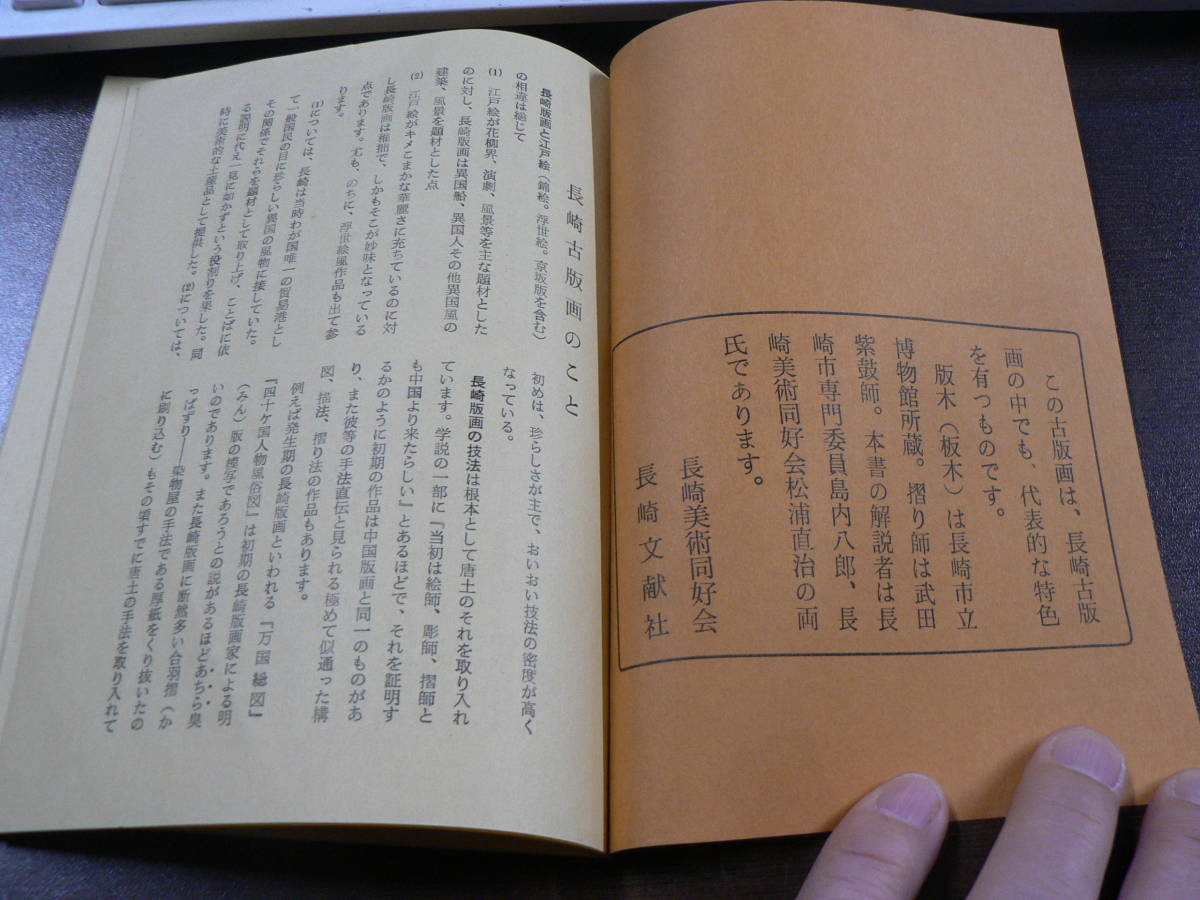 この古版画は、長崎古版
画の中でも、代表的な特色
を有つものです。
版木（板木）は長崎市立
博物館所蔵。摺り師は武田
紫鼓師。本書の解説者は長
崎市専門委員島内八郎、長
崎美術同好会松浦直治の両
氏であります。
長崎美術同好会
長崎文献社
長崎古版画のこと
長崎版画と江戸絵（錦絵。浮世絵。京坂版を含む）
の相違は総じて
(1) 江戸絵が花柳界、演劇、風景等を主な題材とした
のに対し、長崎版画は異国船、異国人その他異国風の
建築、風景を題材とした点
(2) 江戸絵がキメこまかな華麗さに充ちているのに対
し長崎版画は稚拙で、しかもそこが妙味となっている
点であります。尤も、のちに、浮世絵風作品も出て参
ります。
(1)については、長崎は当時わが国唯一の貿易港とし
て一般国民の目に珍らしい異国の風物に接していた。
その関係でそれらを題材として取り上げ、ことばに依
る説明に代え一見に如かずという役割りを果した。同
時に美術的な土産品として提供した。(2)については、
初めは、珍らしさが主で、おいおい技法の密度が高く
なっている。
長崎版画の技法は根本として唐土のそれを取り入れ
ています。学説の一部に『当初は絵師、彫師、摺師と
も中国より来たらしい』とあるほどで、それを証明す
るかのように初期の作品は中国版画と同一のものがあ
り、また彼等の手法直伝と見られる極めて似通った構
図、描法、摺り法の作品もあります。
例えば発生期の長崎版画といわれる『万国総図』
『四十ケ国人物風俗図』は初期の長崎版画家による明
（みん）版の模写であろうとの説があるほどあちら臭
いのであります。また長崎版画に断然多い合羽摺（か
っぱずり――染物屋の手法である厚紙をくり抜いたの
に刷り込む）もその頃すでに唐土の手法を取り入れて